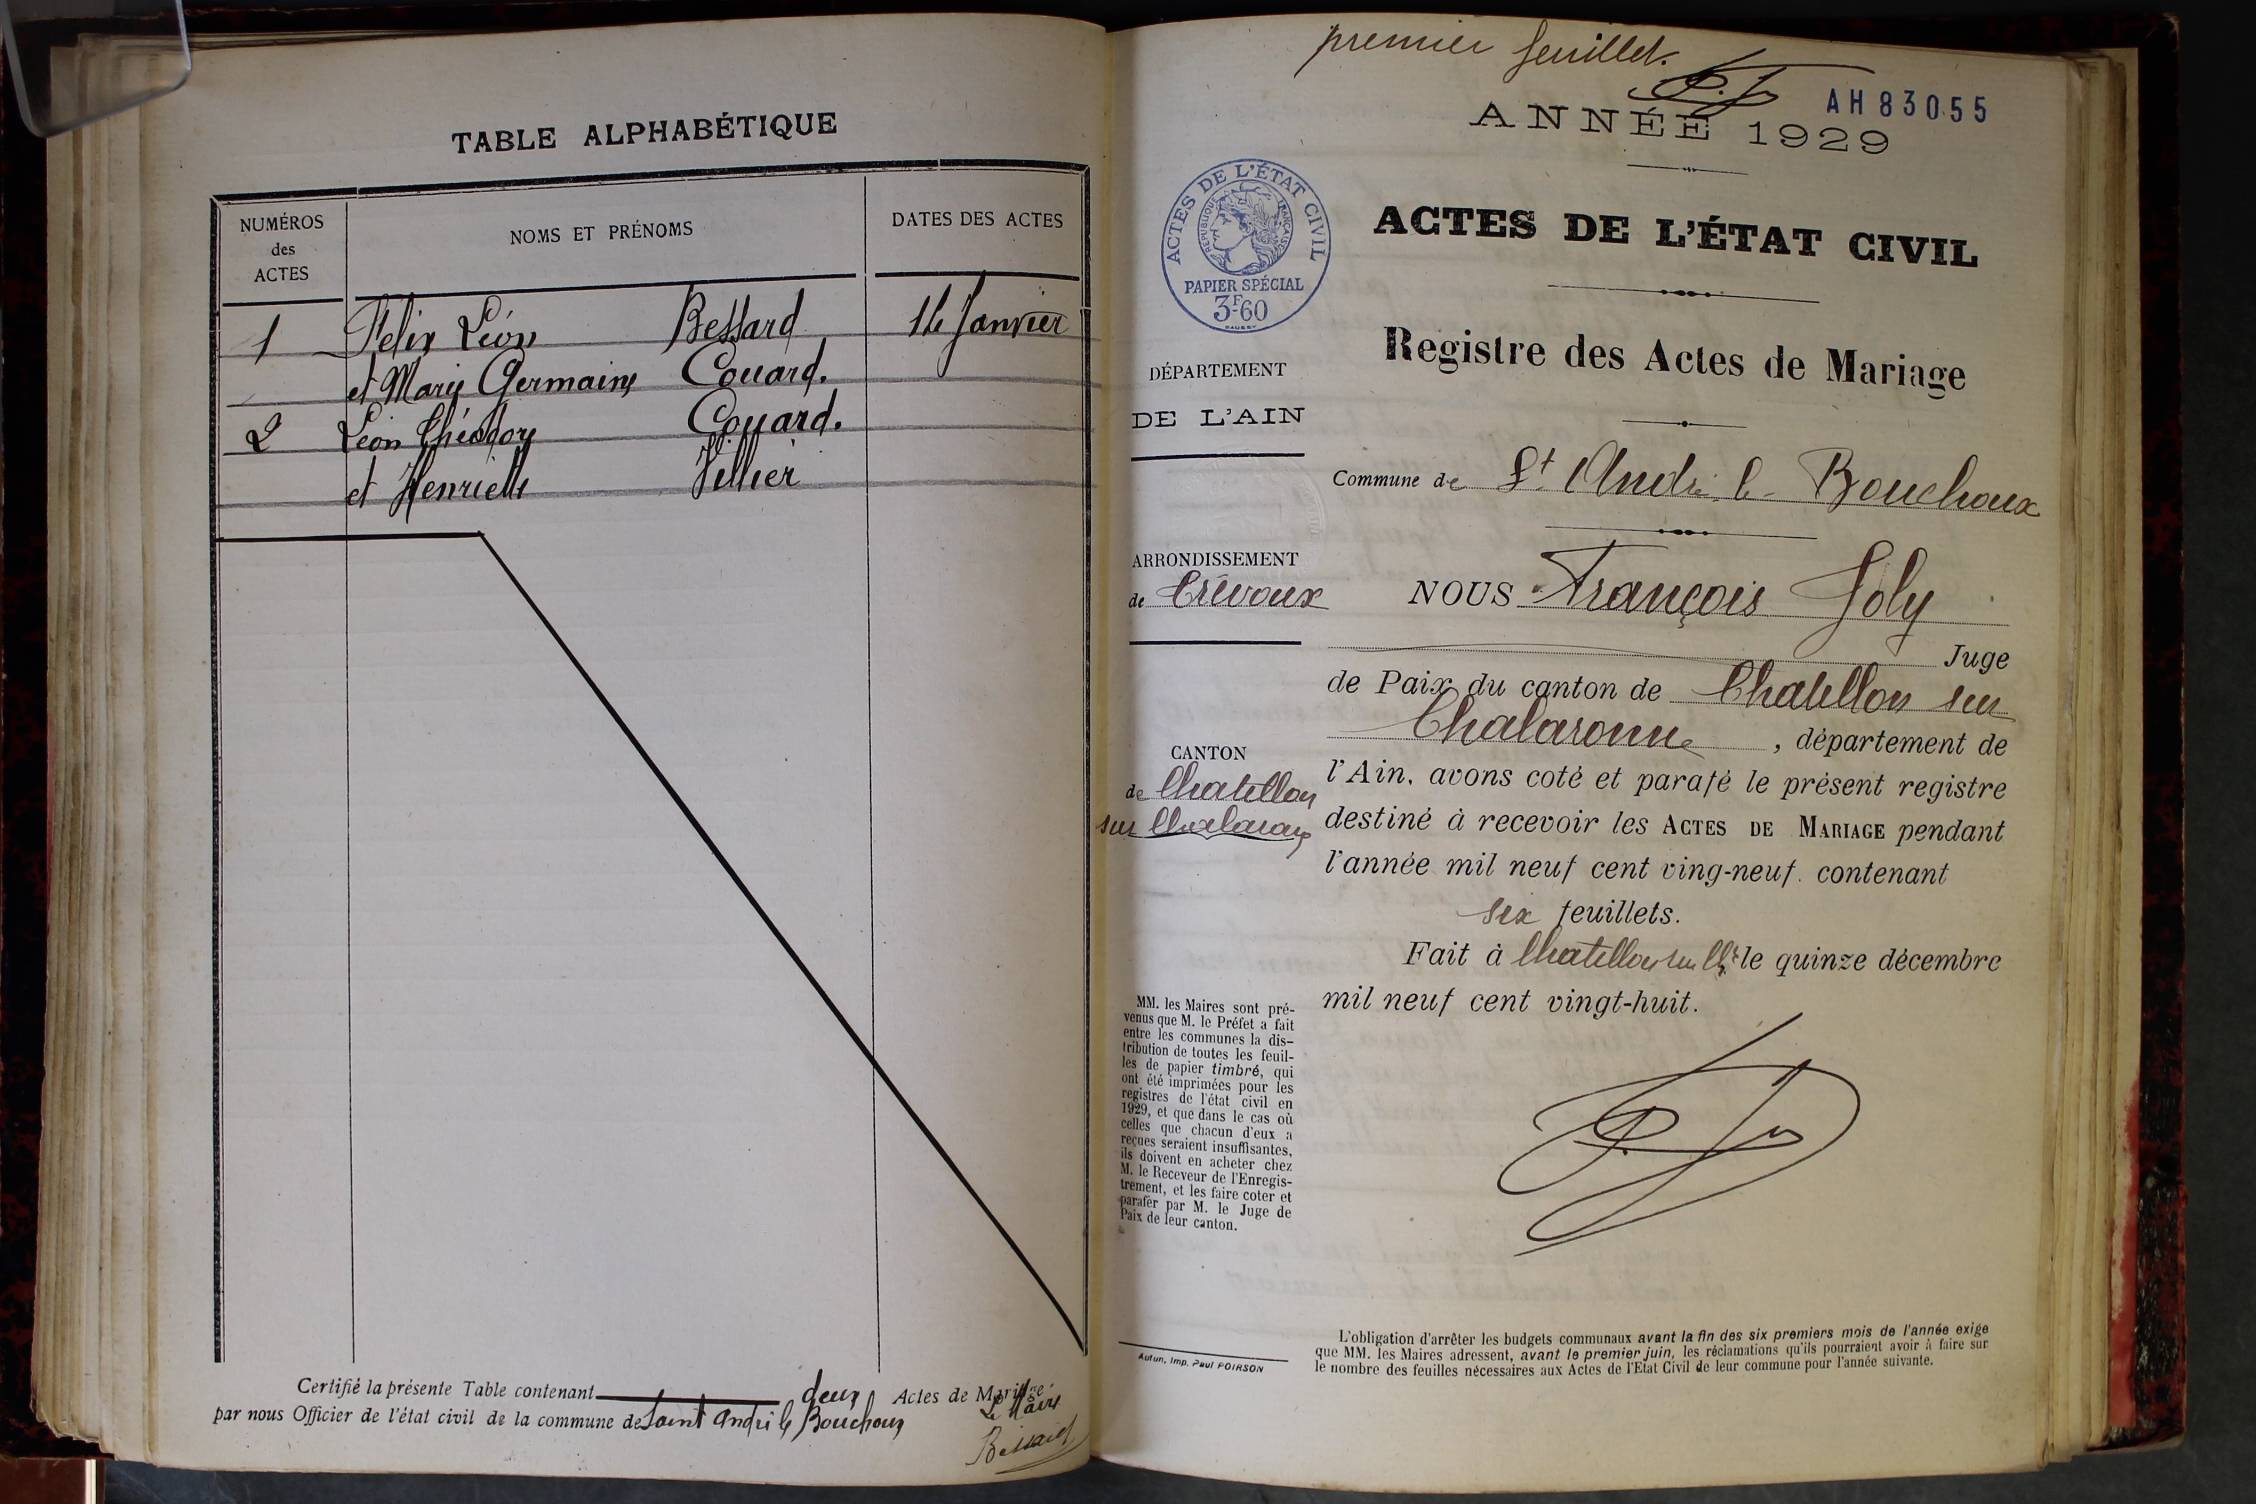 TABLE ALPHABÉTIQUE
NUMÉROS
des
ACTES
NOMS ET PRÉNOMS
DATES DES ACTES
1 Félix Léon Bessard Janvier
et Marie Germaine Couard.
2 Léon Théodore Couard.
et Henriette Vellier
Certifié la présente Table contenant deux Actes de Mariage
par nous Officier de l'état civil de la commune de Saint André le Bouchoux
Le Maire
Bessard
premier feuillet.
AH83055
ANNÉE 1929
ACTES DE L'ÉTAT CIVIL
RÉPUBLIQUE FRANÇAISE
PAPIER SPÉCIAL
3F60
ACTES DE L'ÉTAT CIVIL
Registre des Actes de Mariage
DÉPARTEMENT
DE L'AIN
Commune de St André le Bouchoux
ARRONDISSEMENT
de Trévoux
CANTON
de Chatillon
sur Chalaronne
NOUS François Joly
Juge
de Paix du canton de Chatillon sur
Chalaronne, département de
l'Ain, avons coté et parafé le présent registre
destiné à recevoir les ACTES DE MARIAGE pendant
l'année mil neuf cent ving-neuf. contenant
six feuillets.
Fait à Chatillon sur Chne le quinze décembre
mil neuf cent vingt-huit.
MM. les Maires sont pré-
venus que M. le Préfet a fait
entre les communes la dis-
tribution de toutes les feuil-
les de papier timbré, qui
ont été imprimées pour les
registres de l'état civil en
1929, et que dans le cas où
celles que chacun d'eux a
reçues seraient insuffisantes,
ils doivent en acheter chez
M. le Receveur de l'Enregis-
trement, et les faire coter et
parafer par M. le Juge de
Paix de leur canton.
Autun, Imp. Paul POIRSON
L'obligation d'arrêter les budgets communaux avant la fin des six premiers mois de l'année exige
que MM. les Maires adressent, avant le premier juin, les réclamations qu'ils pourraient avoir à faire sur
le nombre des feuilles nécessaires aux Actes de l'Etat Civil de leur commune pour l'année suivante.